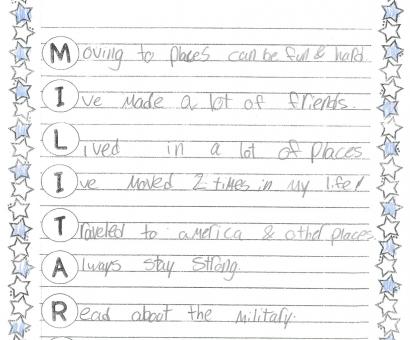 Moving to places can be fun & hard.
I've made a lot of friends.
Lived in a lot of places
I've moved 2 times in my life!
Traveled to america & othd places.
Always stay strong.
Read about the military.